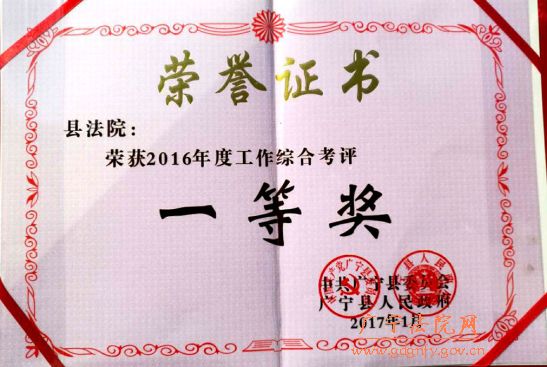 荣誉证书
县法院：
荣获2016年度工作综合考评
一等奖
中共广宁县委员会
广宁县人民政府
2017年1月
广宁法院网
www.gdgnfy.gov.cn